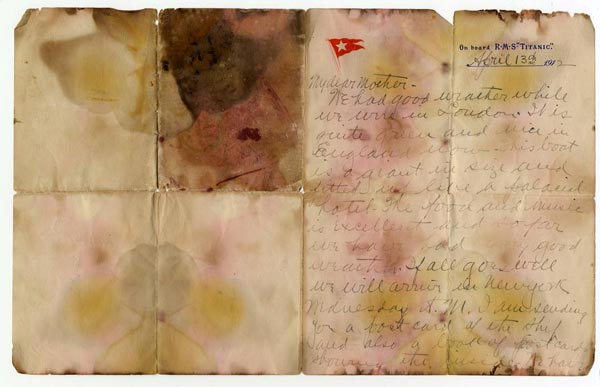 On board R·M·S "TITANIC."
April 13th 1912
My dear Mother-
We had good weather while
we were in London. It is
quite green and nice in
England now. This boat
is a giant in size and
fitted up like a palacial
hotel. The food and music
is excellent and so far
we have had very good
weather. If all goes well
we will arrive in New York
Wednesday A.M. I am sending
you a post card of the ship
and also a book of postcards
showing the inside